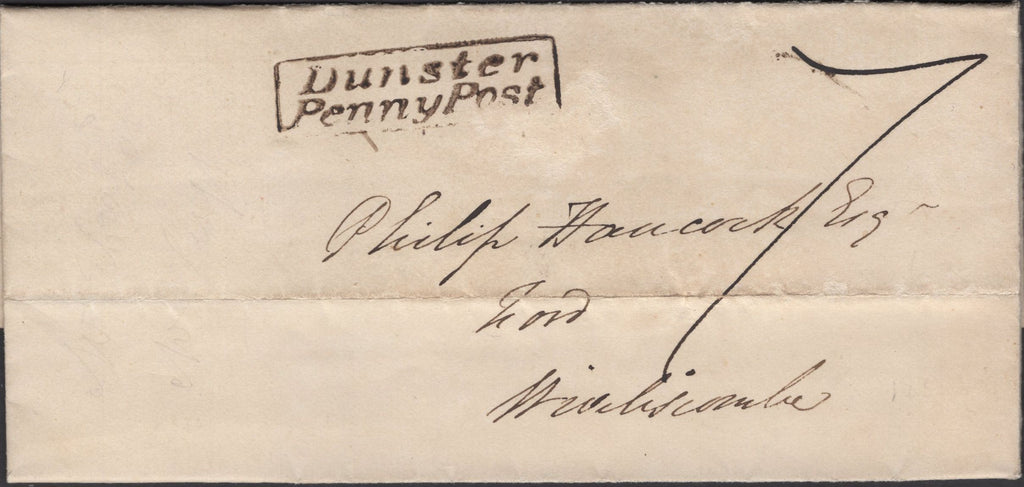 Dunster
Penny Post
7
Philip Hancock Esq
Ford
Wiveliscombe